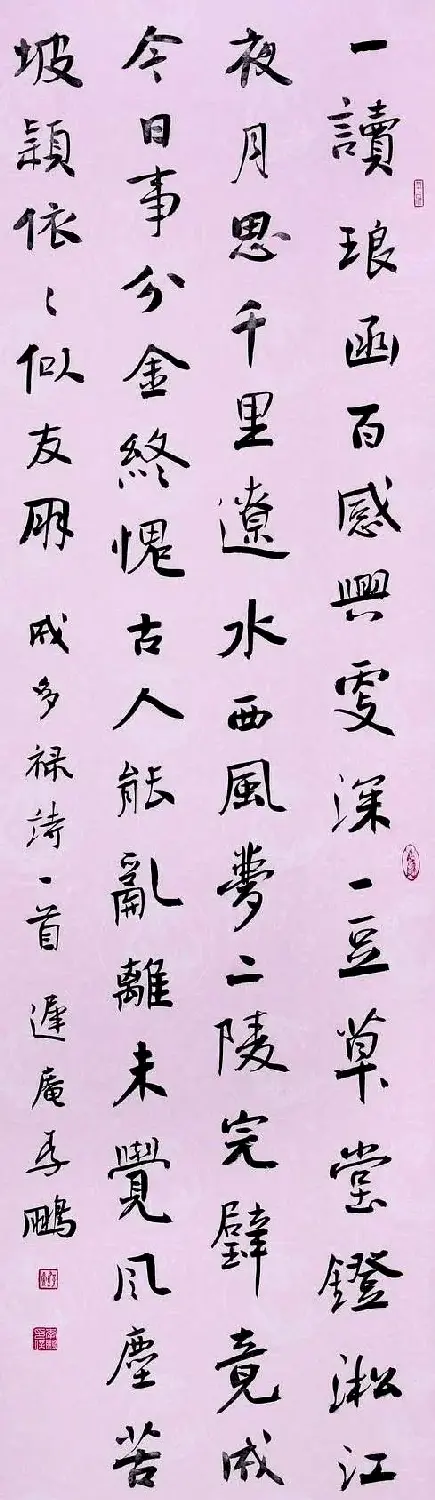 一讀琅函百感興更深一豆草堂鐙淞江
夜月思千里遼水西風夢二陵完璧竟成
今日事分金終愧古人能亂離未覺風塵苦
坡穎依〻似友朋 成多禄詩一首 遲庵李鵬